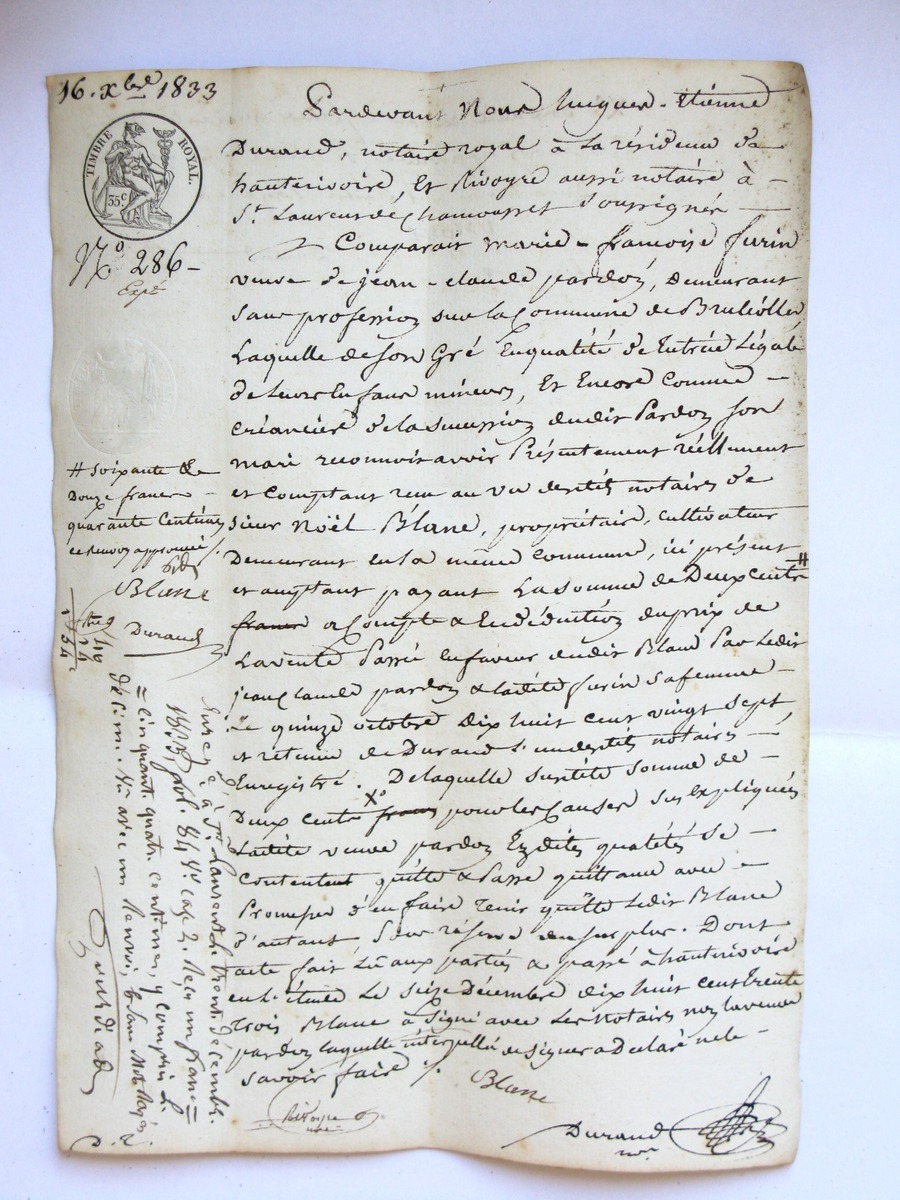 16. Xbre 1833
TIMBRE ROYAL.
35c
No 286 -
Expé
Pardevant Nous hugues - Etienne
Durand, notaire royal à La résidence d'a
hauterivoire, Et Rivoyre aussi notaire à -
St. Laurent de Chamousset Soussignés -
Comparait marie - francoise furin
veuve de jean - claude pardon, demeurant
sans profession sur la Commune de Brulliolles
Laquelle de son Gré En qualité de Tutrice Légale
de Leurs Enfans mineurs, Et Encore Comme -
Créancière de la succession dudit Pardon son
mari reconnoit avoir Présentement réellement
et Comptant recu au vu desdits notaires de
sieur Noël Blanc, propriétaire, cultivateur
Demeurant en la même commune, ici présent
et acceptant payant La somme de Deux cents #
francs a Compte & En déduction du prix de
La vente Passée en faveur dudit Blanc Par Ledit
jean Claude pardon & ladite furin sa femme -
Le quinze octobre dix huit cent vingt sept
et retenue de Durand l'un desdits notaires -
Enregistré. De laquelle susdite somme de -
Deux cents Xo francs pour les Causes sus Expliquées
Ladite veuve pardon Ezdites qualités se -
Contentent quitte & Passe quittance avec -
Promesse d'en faire Tenir quitte Ledit Blanc
d'autant, Sous réserve du surplus. Dont
acte fait Lu aux parties & passé à hauterivoire
en L'étude Le seize Décembre dix huit cent trente
Trois Blanc à Signé avec Les Notaires non la veuve
pardon laquelle interpellée de signer a Déclaré ne le -
savoir faire ./.
Blanc
Rivoyre
nre
Durand
nre
# soixante &
Douze francs -
quarante Centimes
ce renvoi approuvé /.
Blanc
Durand
Enreg. à St. Laurent le trente décembre
1833 fol. 84 Vo case 2. Reçu un franc =
= cinquante quatre centimes, y compris le
décime. Vu avec un Renvoi, &